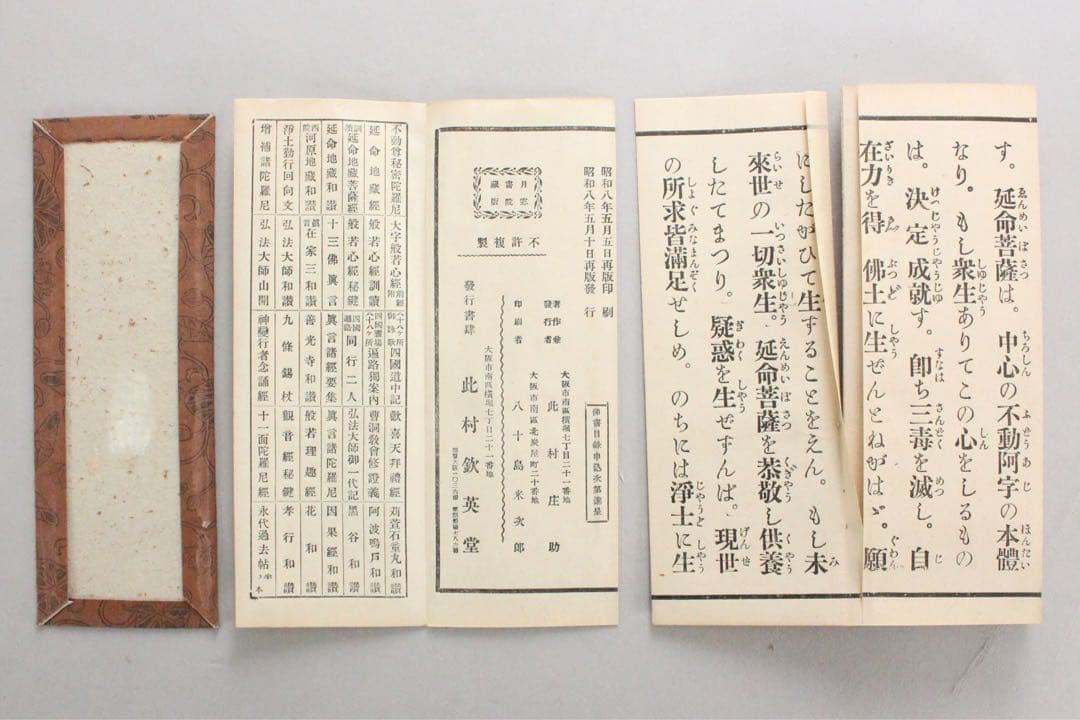 す。延命菩薩は。中心の不動阿字の本體
なり。もし衆生ありてこの心をしるもの
は。決定成就す。卽ち三毒を滅し。自
在力を得 佛土に生ぜんとねがはゞ。願
にしたがひて生ずることをえん。もし未
來世の一切衆生。延命菩薩を恭敬し供養
したてまつり。疑惑を生ぜずんば。現世
の所求皆滿足せしめ。のちには淨土に生
昭和八年五月五日再版印刷
昭和八年五月十日再版發行
佛書目錄申込次第進呈
不許複製
大阪市南區橫堀七丁目二十一番地
發行者 此村庄助
大阪市南區北炭屋町二十番地
印刷者 八十島米次郎
大阪市南區橫堀七丁目二十一番地
發行書肆 此村欽英堂
不動尊秘密陀羅尼 大字般若心經 八十八ケ所御詠歌 四國道中記 歡喜天拜禮經 苅萱石童丸和讃
延命地藏經 般若心經訓讀 四國靈場八十八ケ所 遍路獨案內 曹洞敎會修證義 阿波鳴戶和讃
訓讀 延命地藏菩薩經 般若心經秘鍵 眞言諸經要集 眞言諸陀羅尼 因果經和讃
延命地藏和讃 十三佛眞言 四國遍路 同行二人 弘法大師御一代記 黑谷和讃
西院 河原地藏和讃 眞言 在家三和讃 善光寺和讃 般若理趣經 花和讃
淨土勤行回向文 弘法大師和讃 九條錫杖 觀音經秘鍵 孝行和讃
增補諸陀羅尼 弘法大師山開 神變行者念誦經 十一面陀羅尼經 永代過去帖